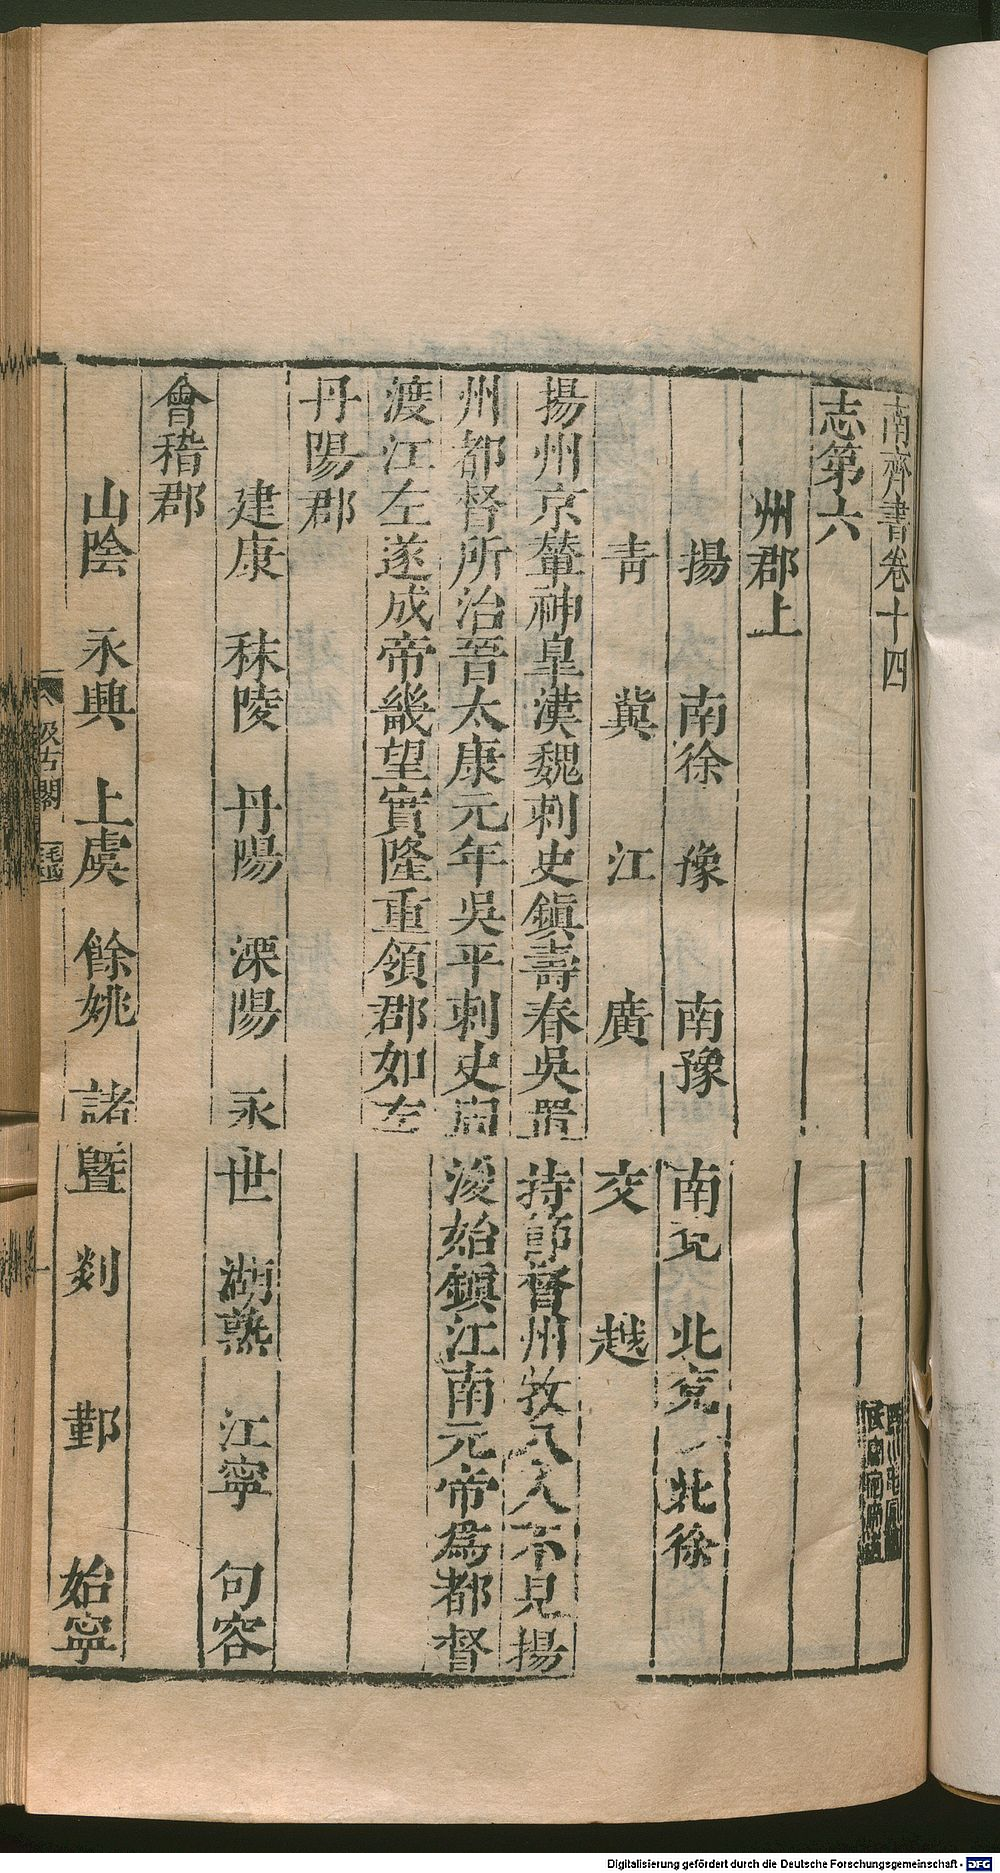 南齊書卷十四
志第六
州郡上
揚 南徐 豫 南豫 南兗 北兗 北徐
青 冀 江 廣 交 越
揚州京輦神皐漢魏刺史鎭壽春吳置持節督州牧八人不見揚
州都督所治晉太康元年吳平刺史周浚始鎭江南元帝爲都督
渡江左遂成帝畿望實隆重領郡如左
丹陽郡
建康 秣陵 丹陽 溧陽 永世 湖熟 江寧 句容
會稽郡
山陰 永興 上虞 餘姚 諸曁 剡 鄞 始寧
汲古閣
Digitalisierung gefördert durch die Deutsche Forschungsgemeinschaft - DFG